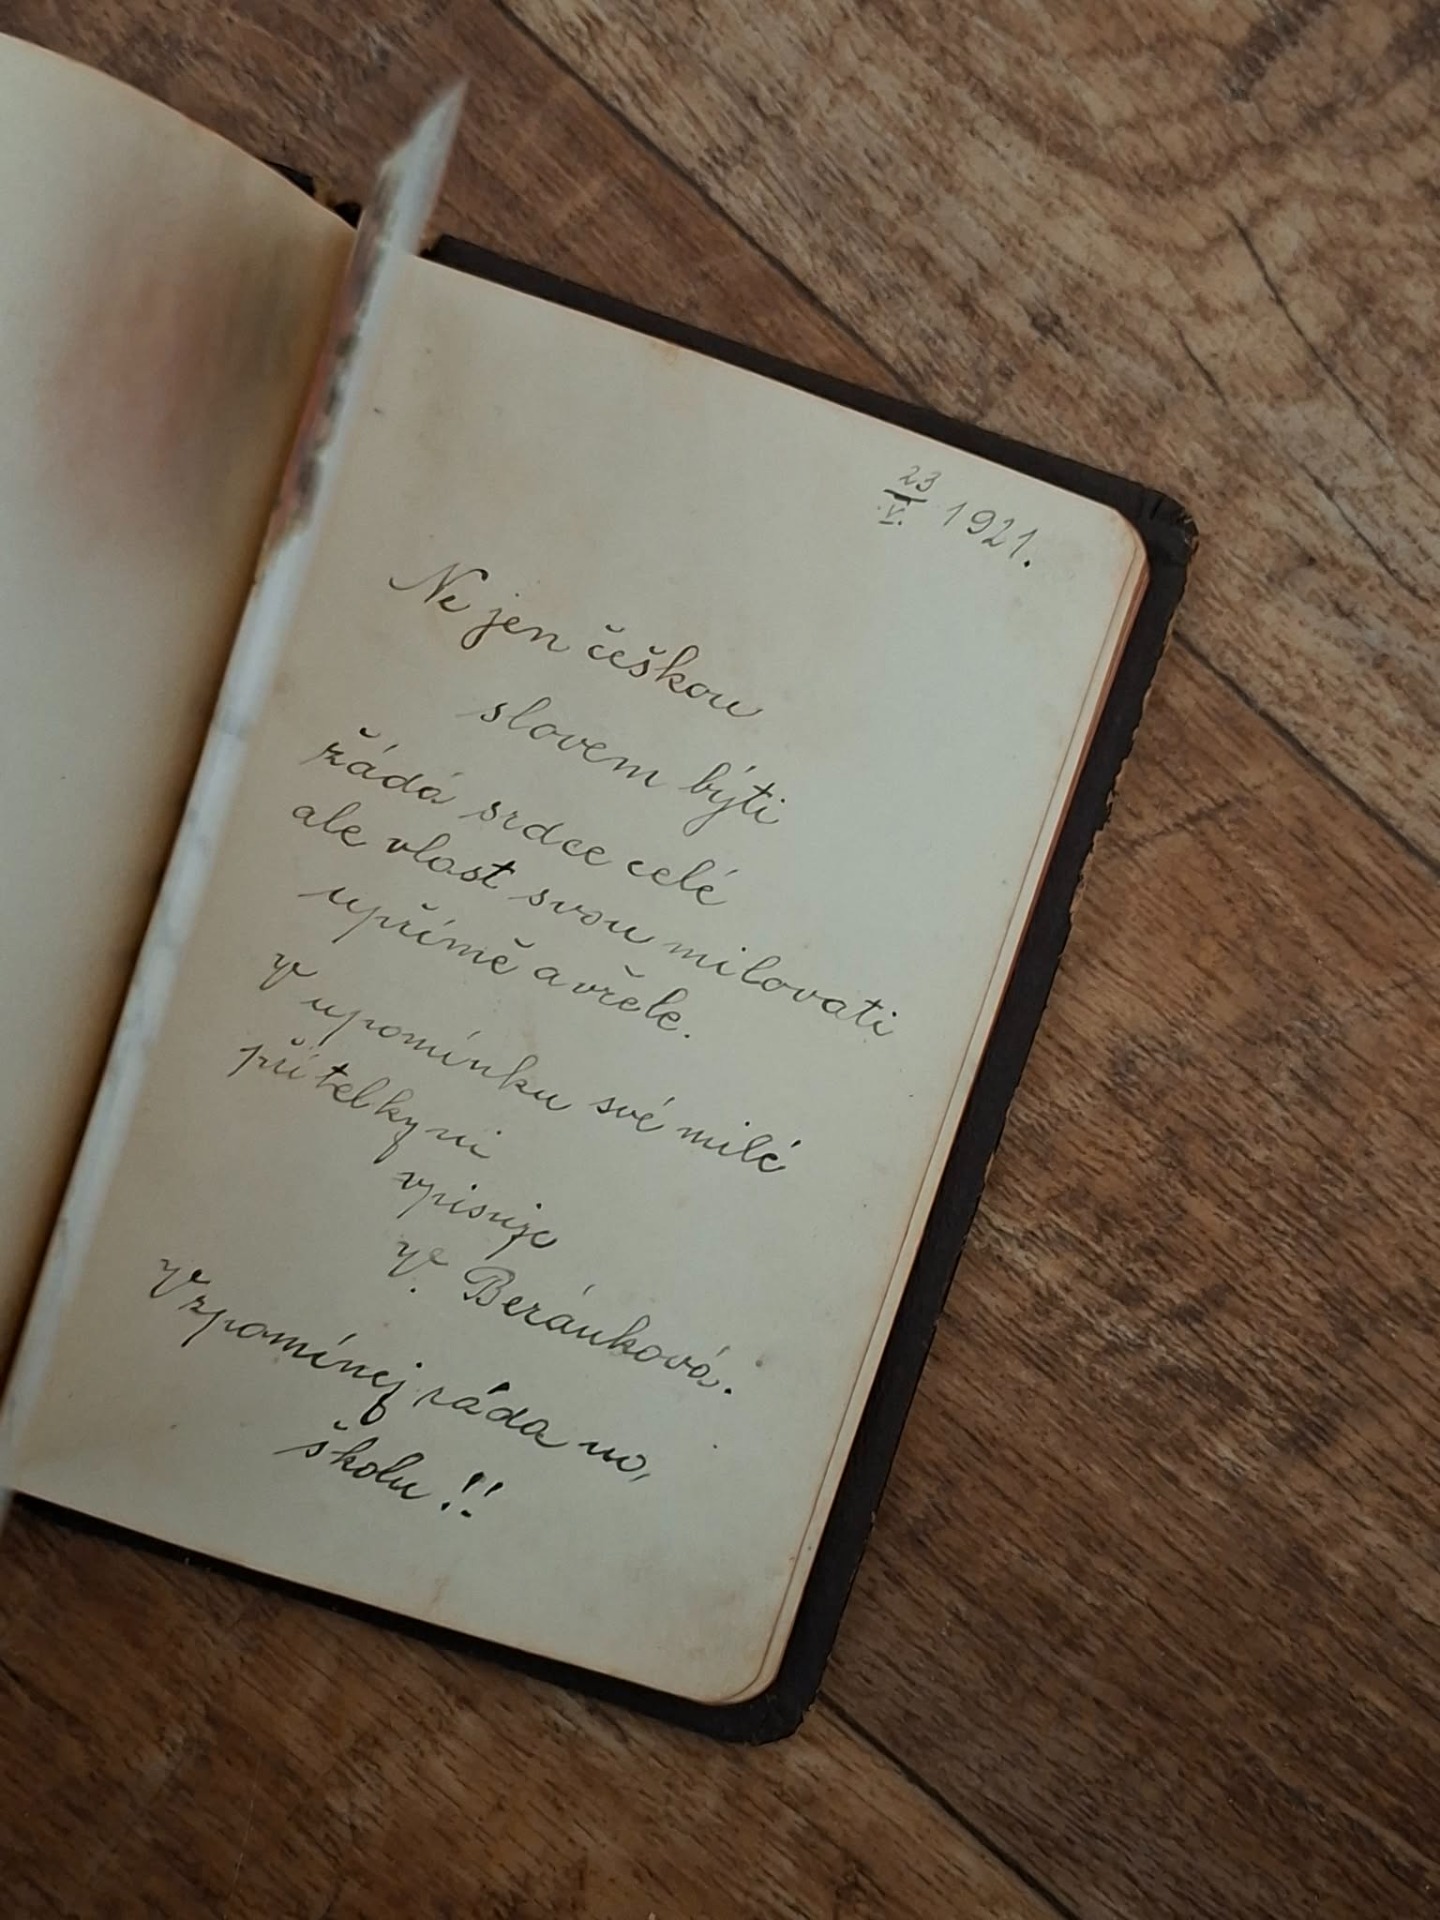 23
V. 1921.
Ne jen češkou
slovem býti
žádá srdce celé
ale vlast svou milovati
upřímě a vřele.
V upomínku své milé
přítelkyni
vpisuje
V. Beránková.
Vzpomínej ráda na,
školu!!